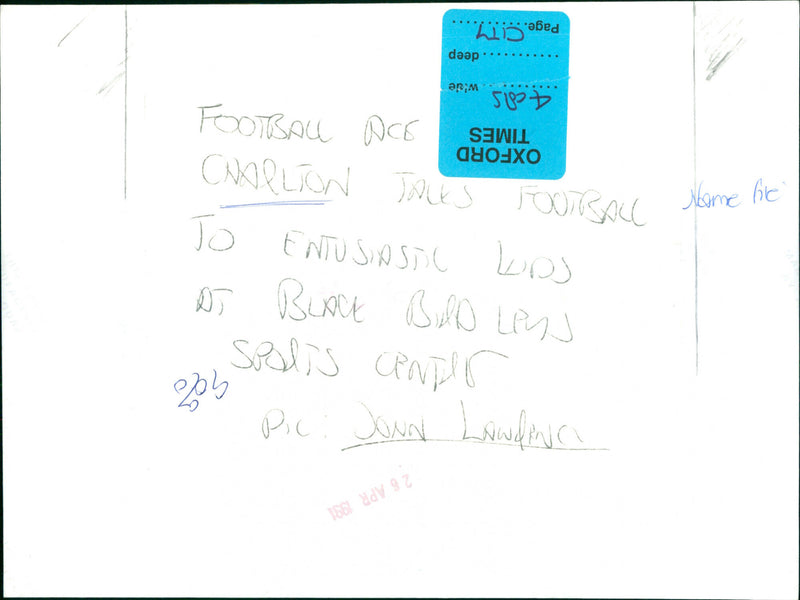 FOOTBALL ACE
CHARLTON TALKS FOOTBALL
TO ENTUSIASTIC KIDS
AT BLACK BIRD LEYS
SPORTS CENTRE
PIC: JOHN LAWRENCE
Name file
OXFORD
TIMES
4 cols wide
deep
Page. CITY
26 APR 1991